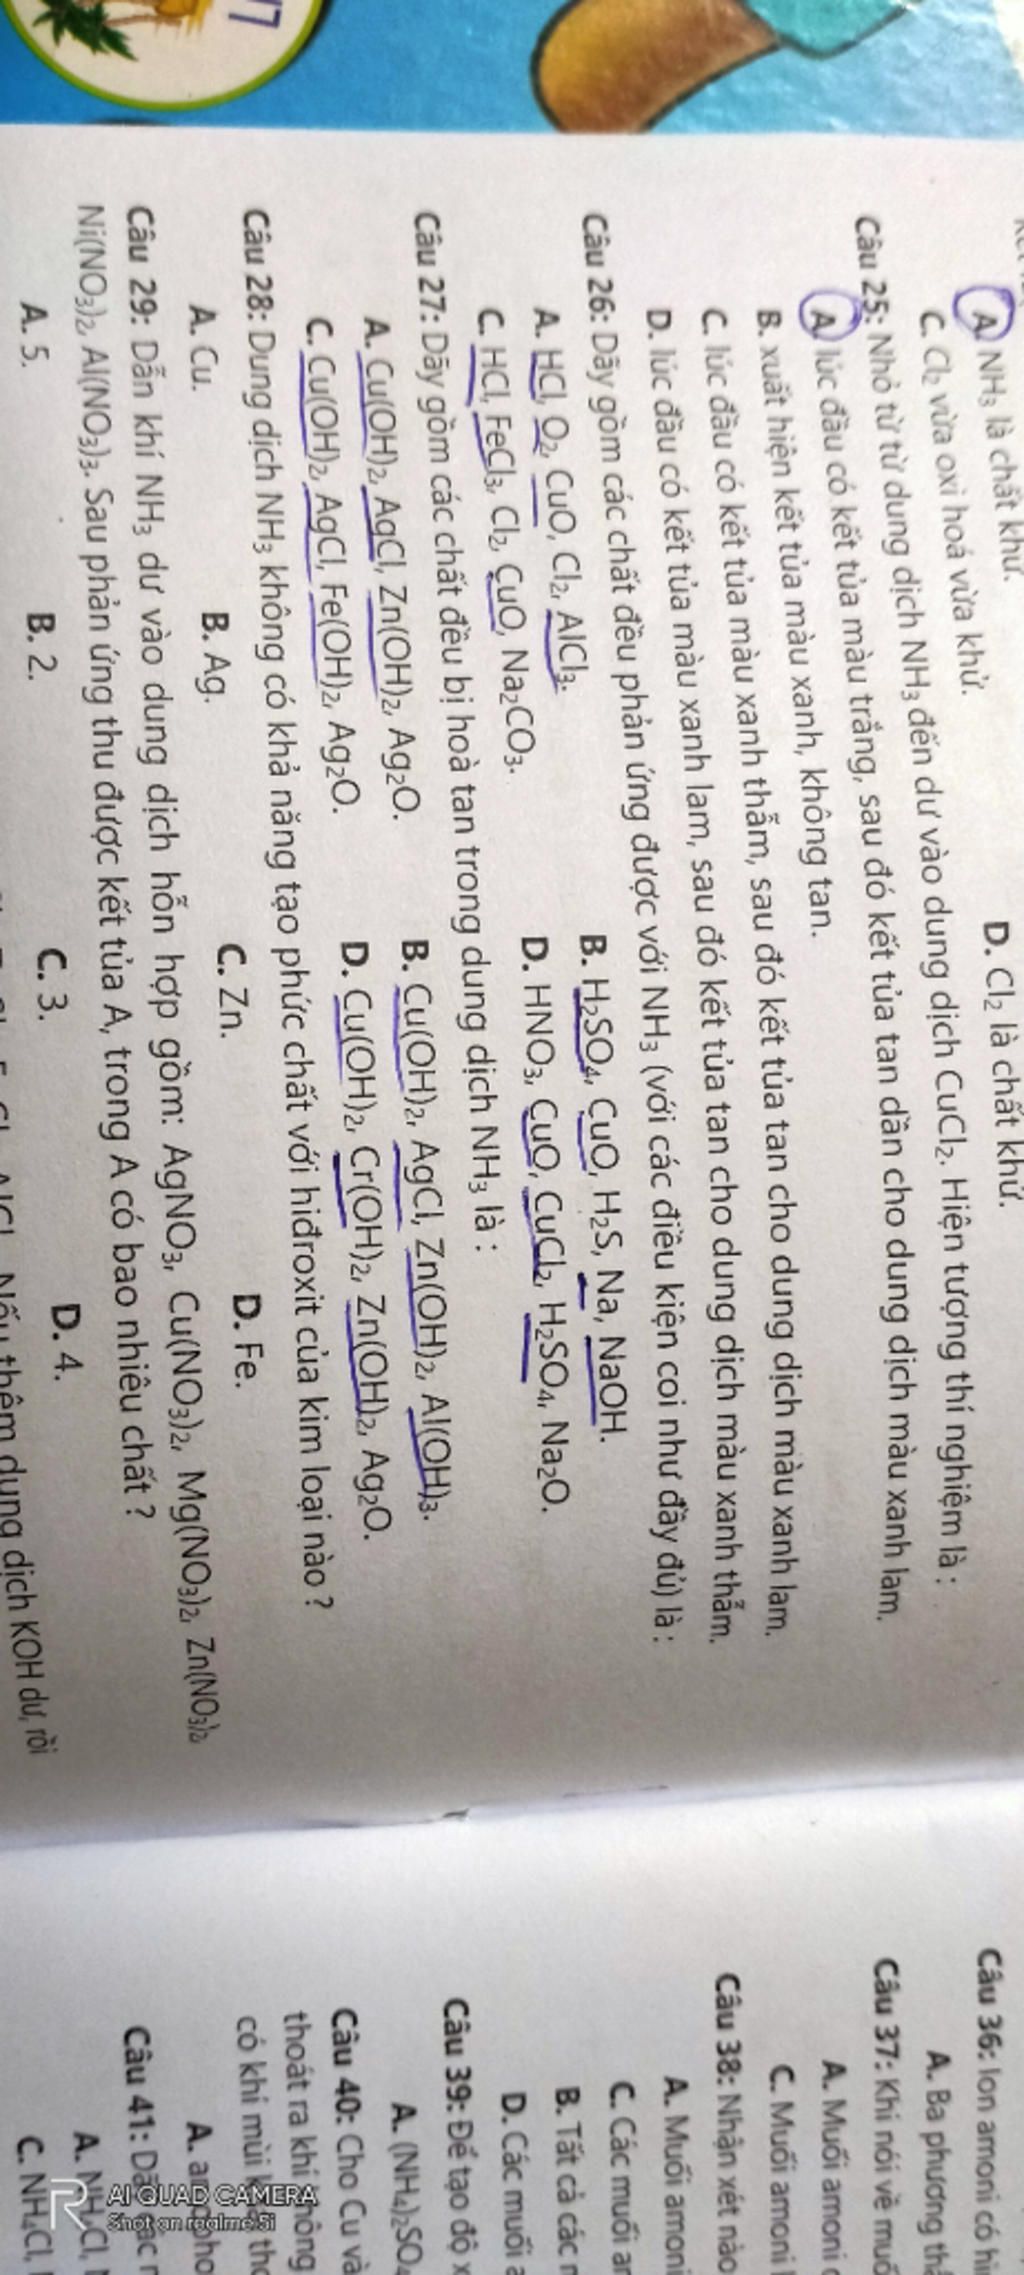 17
A. NH₃ là chất khử.
D. Cl₂ là chất khử.
C. Cl₂ vừa oxi hoá vừa khử.
Câu 25: Nhỏ từ từ dung dịch NH₃ đến dư vào dung dịch CuCl₂. Hiện tượng thí nghiệm là :
A. lúc đầu có kết tủa màu trắng, sau đó kết tủa tan dần cho dung dịch màu xanh lam.
B. xuất hiện kết tủa màu xanh, không tan.
C. lúc đầu có kết tủa màu xanh thẫm, sau đó kết tủa tan cho dung dịch màu xanh lam.
D. lúc đầu có kết tủa màu xanh lam, sau đó kết tủa tan cho dung dịch màu xanh thẫm.
Câu 26: Dãy gồm các chất đều phản ứng được với NH₃ (với các điều kiện coi như đầy đủ) là :
A. HCl, O₂, CuO, Cl₂, AlCl₃.
B. H₂SO₄, CuO, H₂S, Na, NaOH.
C. HCl, FeCl₃, Cl₂, CuO, Na₂CO₃.
D. HNO₃, CuO, CuCl₂, H₂SO₄, Na₂O.
Câu 27: Dãy gồm các chất đều bị hoà tan trong dung dịch NH₃ là :
A. Cu(OH)₂, AgCl, Zn(OH)₂, Ag₂O.
B. Cu(OH)₂, AgCl, Zn(OH)₂, Al(OH)₃.
C. Cu(OH)₂, AgCl, Fe(OH)₂, Ag₂O.
D. Cu(OH)₂, Cr(OH)₂, Zn(OH)₂, Ag₂O.
Câu 28: Dung dịch NH₃ không có khả năng tạo phức chất với hiđroxit của kim loại nào ?
A. Cu.
B. Ag.
C. Zn.
D. Fe.
Câu 29: Dẫn khí NH₃ dư vào dung dịch hỗn hợp gồm: AgNO₃, Cu(NO₃)₂, Mg(NO₃)₂, Zn(NO₃)₂,
Ni(NO₃)₂, Al(NO₃)₃. Sau phản ứng thu được kết tủa A, trong A có bao nhiêu chất ?
A. 5.
B. 2.
C. 3.
D. 4.
Nếu thêm dung dịch KOH dư, rồi
Câu 36: Ion amoni có
A. Ba phương
Câu 37: Khi nói về
A. Muối amoni
C. Muối amoni
Câu 38: Nhận xét nào
A. Muối amoni
C. Các muối
B. Tất cả các
D. Các muối
Câu 39: Để tạo độ
A. (NH₄)₂SO₄
Câu 40: Cho Cu và
thoát ra khí không
có khí mùi
Câu 41:
A. NH₄Cl,
C. NH₄Cl,
AI QUAD CAMERA
Shot on realme 5i